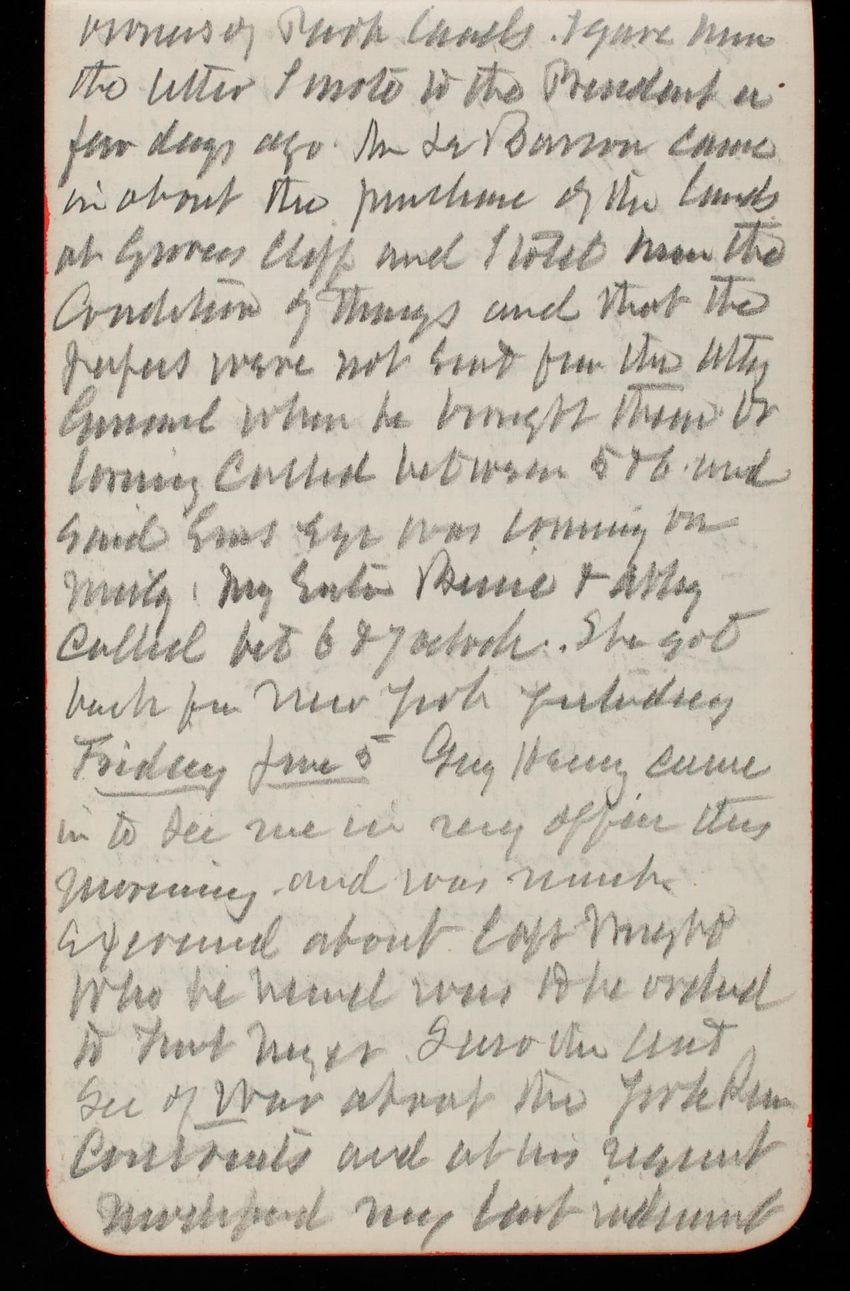 owners of Park lands. I gave him
the letter I wrote to the President a
few days ago. Mr Le Barron came
in about the purchase of the lands
at Grovers Cliff and I told him the
Condition of things and that the
papers were not sent from the Atty
General when he brought them Dr
Loring Called between 5 & 6 and
said was coming on
My Sister & Abby
Called bet 6 & 7 oclock. She got
back from New York yesterday
Friday June 5 Guy Henry came
in to see me in my office this
morning and was much
exercised about Capt Wright
Who he heard was to be ordered
to Fort Myer Saw the asst
Sec of War about the York River
Contracts and at his request
modified my last indorsement